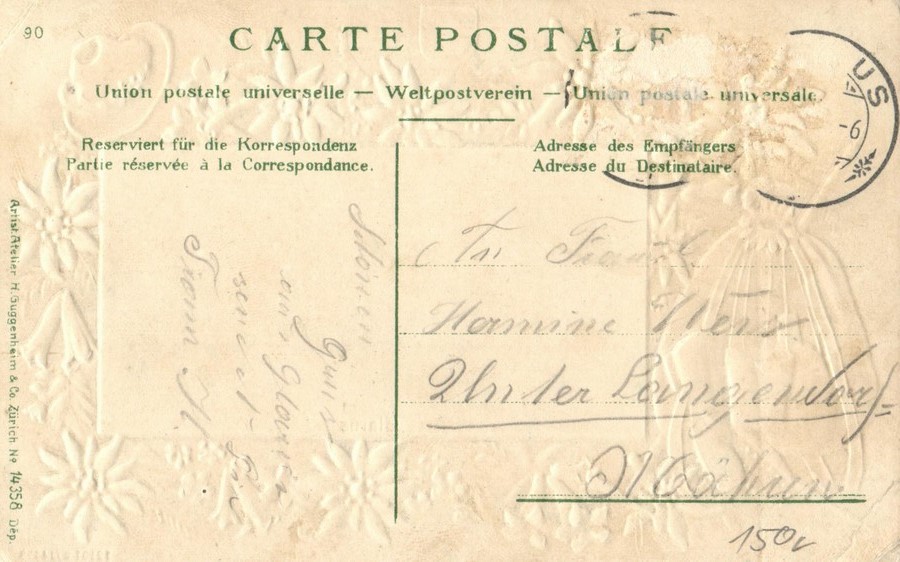 90
CARTE POSTALE
Union postale universelle — Weltpostverein — Union postale universale.
Reserviert für die Korrespondenz
Partie réservée à la Correspondance.
Adresse des Empfängers
Adresse du Destinataire.
US
-6
Artist. Atelier H. Guggenheim & Co. Zürich No 14358 Dép.
Schönen
Gruß
sendet
An
Unter Langendorf
Mähren
150